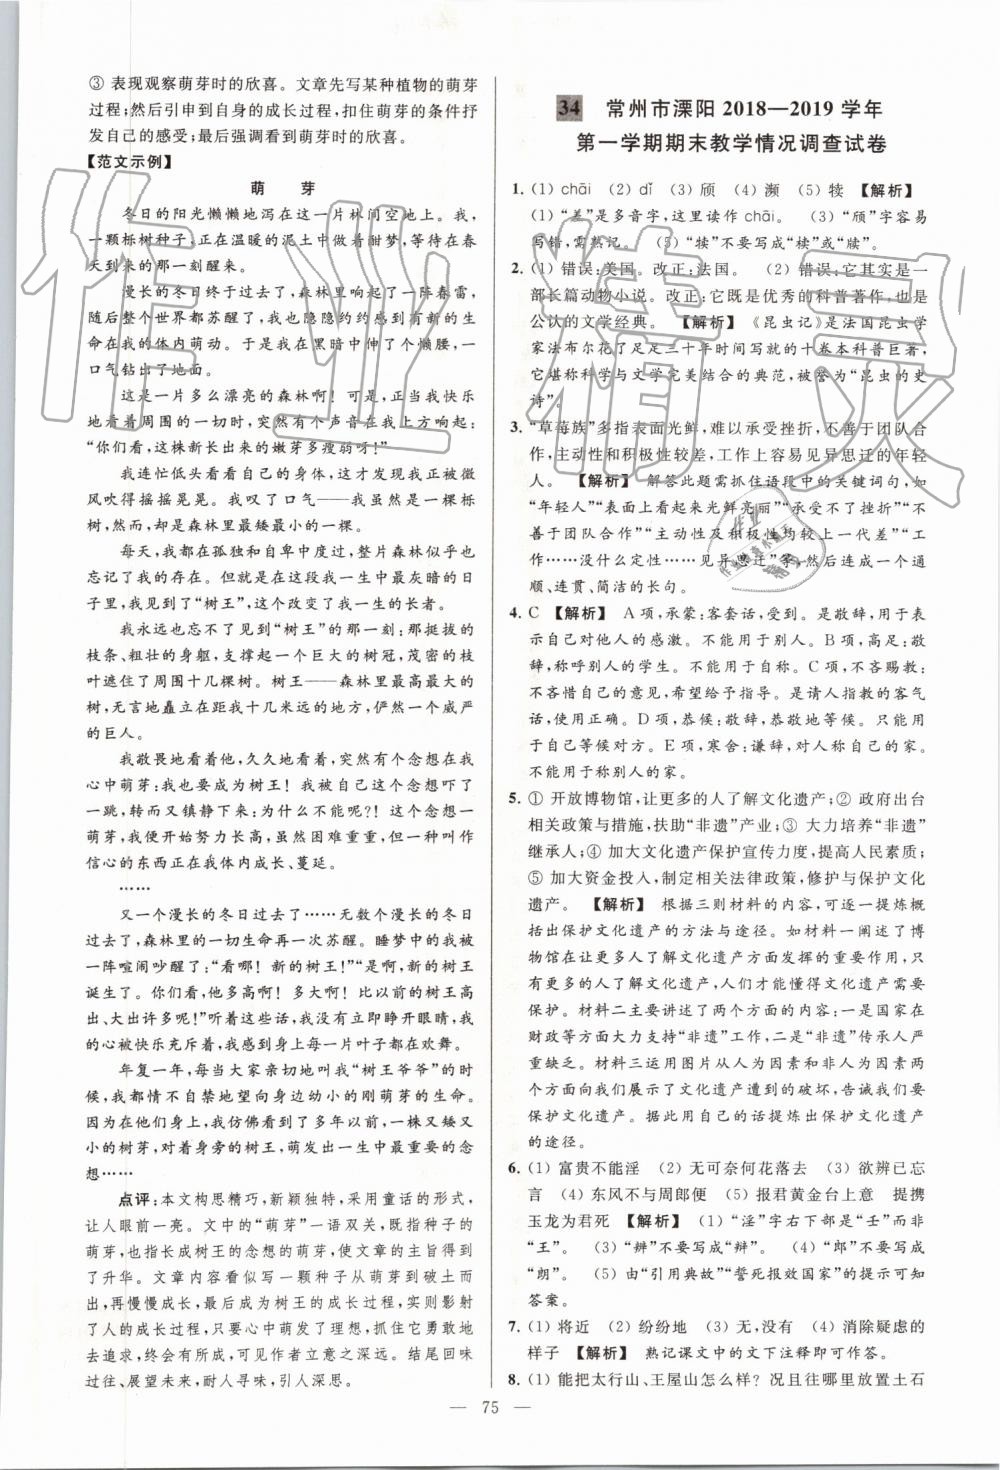 ③ 表现观察萌芽时的欣喜。文章先写某种植物的萌芽
过程;然后引申到自身的成长过程,扣住萌芽的条件抒
发自己的感受;最后强调看到萌芽时的欣喜。
【范文示例】
萌 芽
冬日的阳光懒懒地泻在这一片林间空地上。我,
一颗栎树种子,正在温暖的泥土中做着酣梦,等待在春
天到来的那一刻醒来。
漫长的冬日终于过去了,森林里响起了一阵春雷,
随之整个世界都苏醒了,我也隐隐约约感到有新的生
命在我的体内萌动。于是,我在黑暗中伸了个懒腰,一
口气钻出了地面。
这是一片多么漂亮的森林啊!可是,正当我快乐
地看着周围的一切时,忽然有个声音在我上方响起:
“你们看,这株新长出来的嫩芽多瘦弱呀!”
我连忙低头看看自己的身体,这才发现我正被微
风吹得摇摇晃晃。我叹了口气——我虽然是一棵栎
树,但却是森林里最矮最小的一棵。
每天,我都在孤独和自卑中度过,整片森林似乎也
忘记了我的存在。但是,就在我一生中最灰暗的日
子里,我见到了“树王”,他成了我一生的长者。
我永远也忘不了见到“树王”的那一刻:那挺拔的
枝条、粗壮的身躯,支撑起一个巨大的树冠,茂密的枝
叶遮住了周围十几棵树。树王——森林里最高最大的
树,无言地矗立在距我十几米远的地方,俨然一个威严
的巨人。
我敬畏地看着他,久久地看着,突然有一个念想在我
心中萌芽:我也要成为树王!我被这个念想吓了
一跳,转而又镇静下来:为什么不能呢?!这个念想一
萌芽,我便开始努力长高,虽然困难重重,但一种叫作
信心的东西正在我体内成长、蔓延。
……
又一个漫长的冬日过去了……无数个漫长的冬日
过去了,森林里的一切生命再一次苏醒。睡梦中的我被
一阵喧闹吵醒了:“看哪!新的树王!”“是啊,新的树王
诞生了。你们看,他多高啊!多大啊!比以前的树王高
出、大出许多呢!”听着这些话,我没有立即睁开眼睛,我
的心被快乐充斥着,我感到身上每一片叶子都在欢舞。
年复一年,每当大家亲切地叫我“树王爷爷”的时
候,我都情不自禁地望向身边幼小的刚萌芽的生命。
从他们身上,我仿佛看到了多年以前,一株又矮又
小的树芽,对着身旁的树王,萌发出一生中最重要的念
想……
点评:本文构思精巧,新颖独特,采用童话的形式,
让人眼前一亮。文中的“萌芽”一语双关,既指种子的
萌芽,也指长成树王的念想的萌芽,使文章的主旨得到
了升华。文章内容看似写一颗种子从萌芽到破土而
出,再慢慢成长,最后成为树王的成长过程,实则影射
了人的成长过程,只要心中萌发了理想,并抓住它勇敢地
去追求,终会有所成,可见作者立意之深远。结尾回味
过往、展望未来,耐人寻味,引人深思。
34 常州市溧阳 2018—2019 学年
第一学期期末教学情况调查试卷
1. (1) chāi (2) dǐ (3) 颀 (4) 濒 (5) 犊 【解析】
(1)“差”是多音字,这里读作 chāi。 (3)“颀”字容易
写错,需熟记。 (5)“犊”不要写成“椟”或“牍”。
2. (1) 错误:美国。改正:法国。 (2) 错误:它其实是一
部长篇动物小说。改正:它既是优秀的科普著作,也是
公认的文学经典。 【解析】《昆虫记》是法国昆虫学
家法布尔花了足足三十年时间写就的十卷本科普巨著,
它堪称科学与文学完美结合的典范,被誉为“昆虫的史
诗”。
3. “草莓族”多指表面光鲜,难以承受挫折,不善于团队合
作,主动性和积极性较差,工作上容易见异思迁的年轻
人。 【解析】 解答此题需抓住语段中的关键词句,如
“年轻人”“表面上看起来光鲜亮丽”“承受不了挫折”“不
善于团队合作”“主动性及积极性均较上一代差”“工
作……没什么定性……见异思迁”等,然后合成一个通
顺、连贯、简洁的长句。
4. C 【解析】 A 项,承蒙:客套话,受到。是敬辞,用于表
示自己对他人的感激。不能用于别人。B 项,高足:敬
辞,称呼别人的学生。不能用于自称。C 项,不吝赐教:
不吝惜自己的意见,希望给予指导。是请人指教的客气
话,使用正确。D 项,恭候:敬辞,恭敬地等候。只能用
于自己等候对方。E 项,寒舍:谦辞,对人称自己的家。
不能用于称别人的家。
5. ① 开放博物馆,让更多的人了解文化遗产;② 政府出台
相关政策与措施,扶助“非遗”产业;③ 大力培养“非遗”
继承人;④ 加大文化遗产保护宣传力度,提高人民素质;
⑤ 加大资金投入,制定相关法律政策,修护与保护文化
遗产。 【解析】 根据三则材料的内容,可逐一提炼概
括出保护文化遗产的方法与途径。如材料一阐述了博
物馆在让更多的人了解文化遗产方面发挥的重要作用,
只有更多的人了解文化遗产,人们才能懂得文化遗产需要
保护。材料二主要讲述了两个方面的内容:一是国家在
财政等方面大力支持“非遗”工作,二是“非遗”传承人严
重缺乏。材料三运用图片从人为因素和非人为因素两
个方面向我们展示了文化遗产遭到的破坏,告诫我们要
保护文化遗产。据此用自己的话提炼出保护文化遗产
的途径。
6. (1) 富贵不能淫 (2) 无可奈何花落去 (3) 欲辨已忘
言 (4) 东风不与周郎便 (5) 报君黄金台上意 提携
玉龙为君死 【解析】 (1)“淫”字右下部是“壬”而非
“王”。 (3)“辨”不要写成“辩”。 (4)“郎”不要写成
“朗”。 (5) 由“引用典故”“誓死报效国家”的提示可知
答案。
7. (1) 将近 (2) 纷纷地 (3) 无,没有 (4) 消除疑虑的
样子 【解析】 熟记课文中的文下注释即可作答。
8. (1) 能把太行山、王屋山怎么样?况且往哪里放置土石
— 75 —